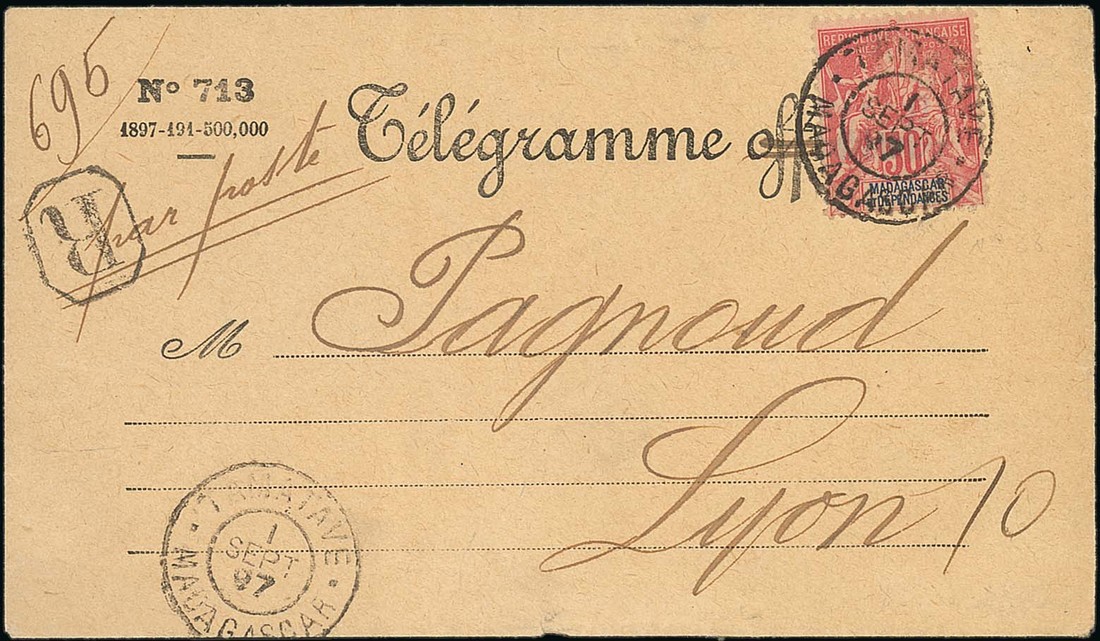 695
Nº 713
1897-191-500,000
par poste
R
Télégramme off
REPUBLIQUE FRANÇAISE
50
MADAGASCAR
et DÉPENDANCES
TAMATAVE
1
SEPT
97
MADAGASCAR
M Pagnoud
Lyon 10
TAMATAVE
1
SEPT
97
MADAGASCAR